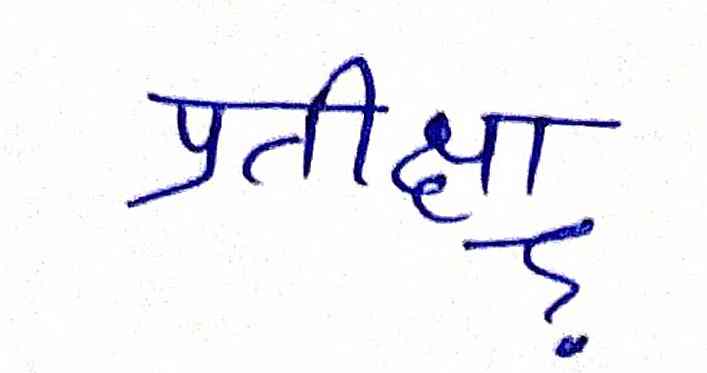 प्रतीक्षा